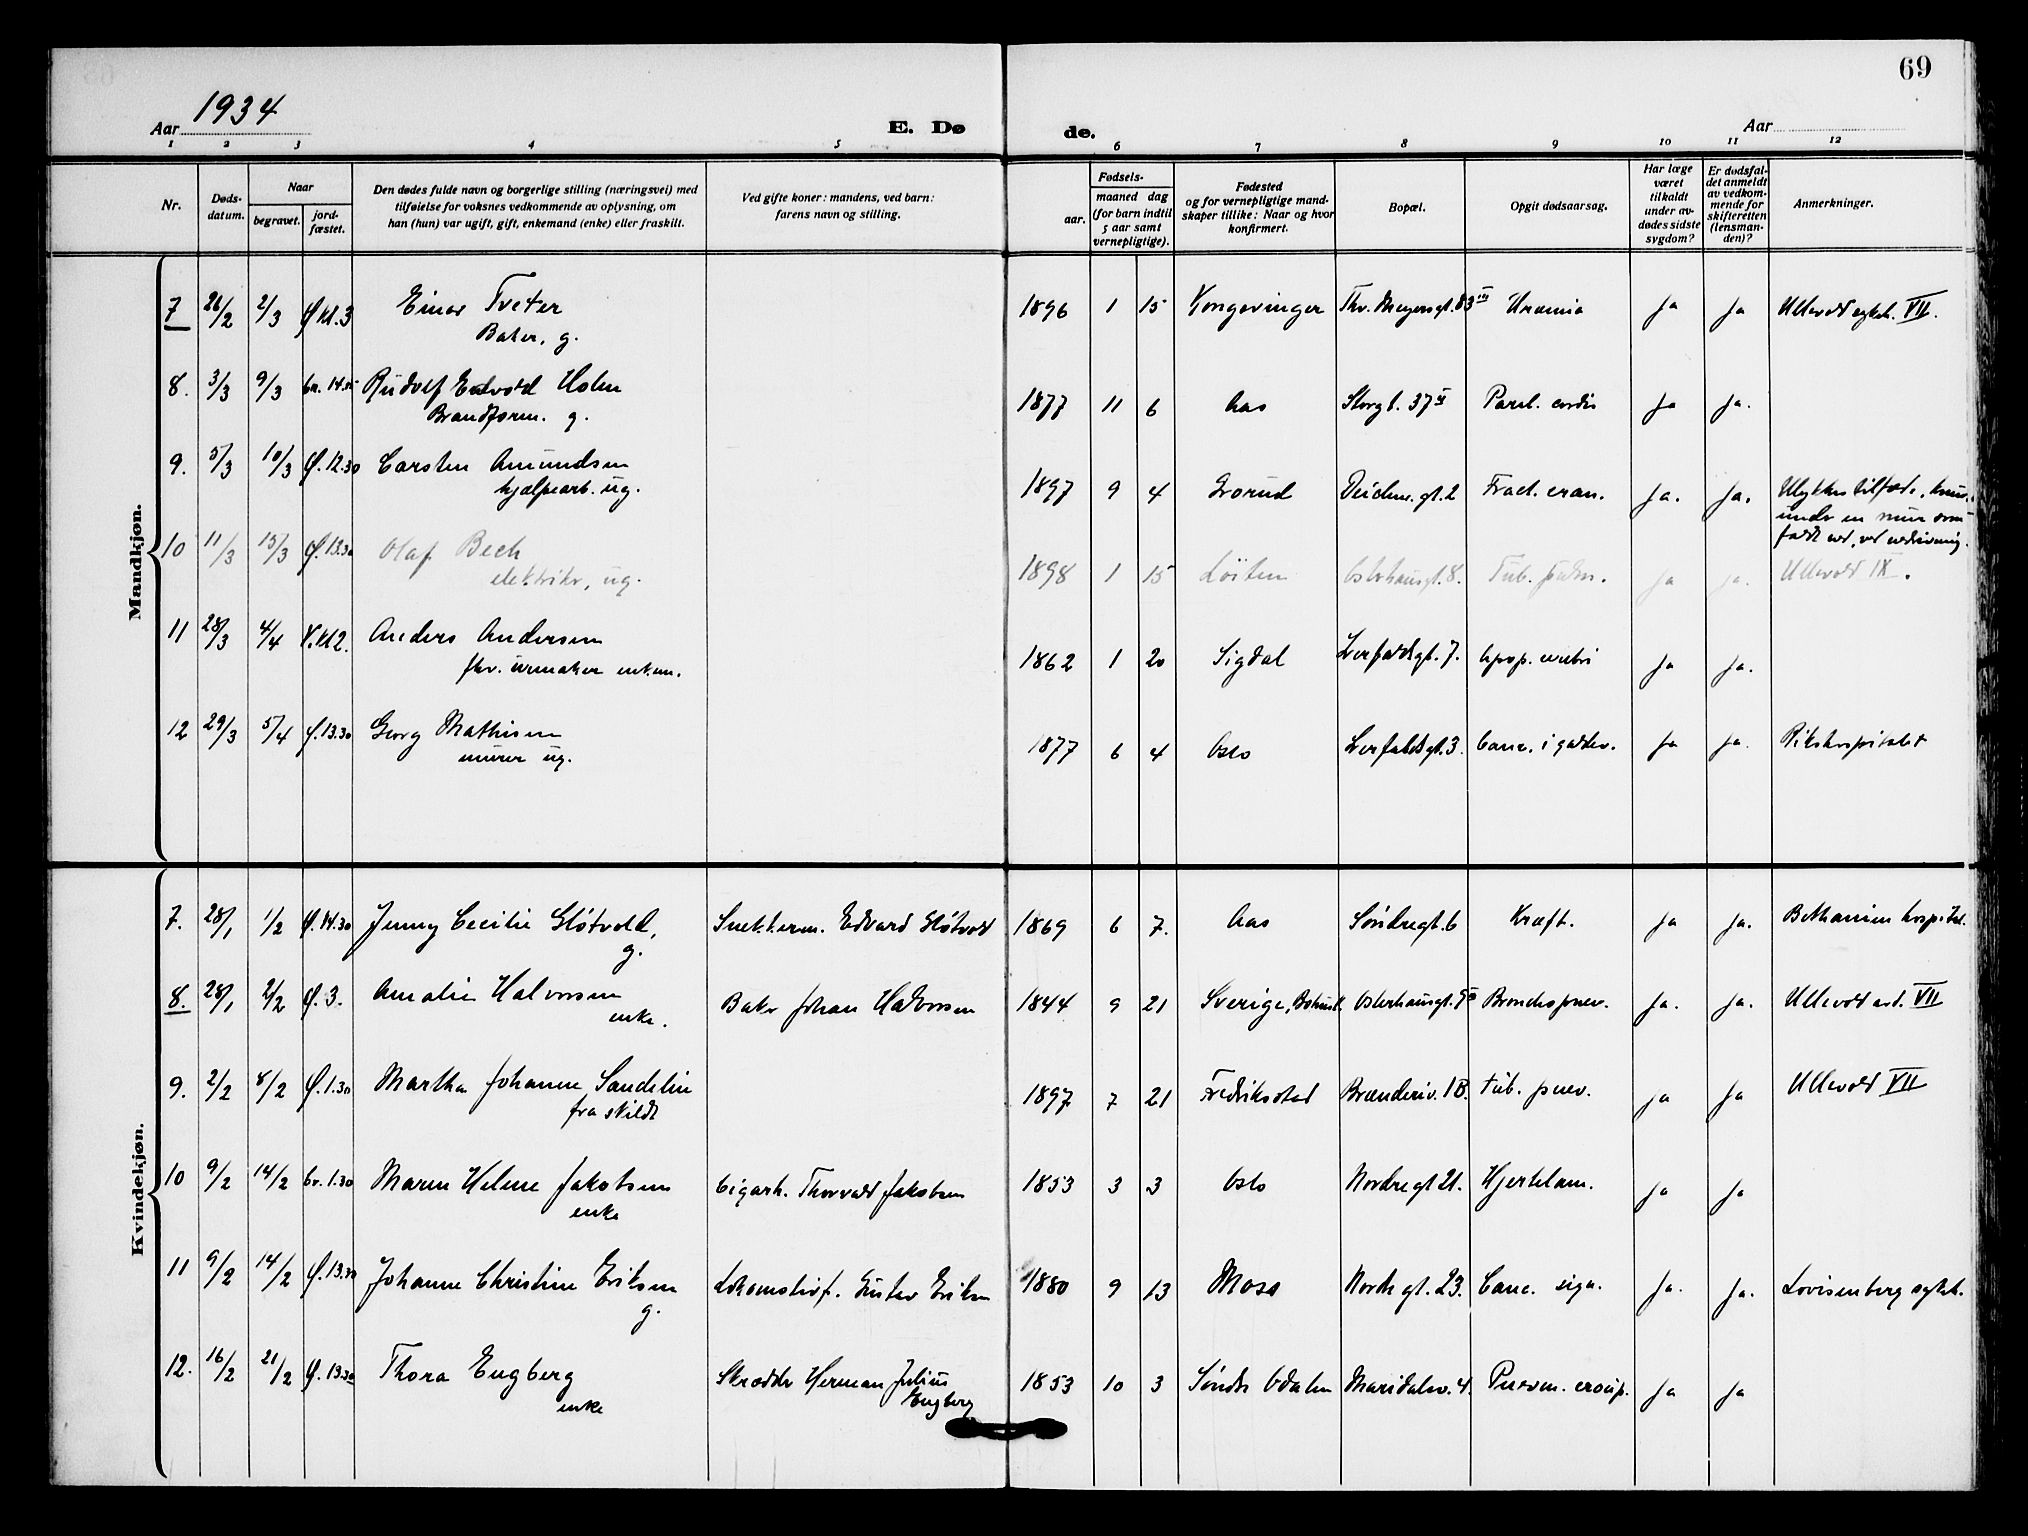 69
Aar 1934
E. Dø
de.
Aar
1 2 3 4 5 6 7 8 9 10 11 12
Nr.
Døds-
datum.
Naar
begravet.
jord-
fæstet.
Den dødes fulde navn og borgerlige stilling (næringsvei) med
tilføielse for voksnes vedkommende av oplysning, om
han (hun) var ugift, gift, enkemand (enke) eller fraskilt.
Ved gifte koner: mandens, ved barn:
farens navn og stilling.
Fødsels-
aar.
maaned dag
(for barn indtil
5 aar samt
vernepligtige).
Fødested
og for vernepligtige mand-
skaper tillike: Naar og hvor
konfirmert.
Bopæl.
Opgit dødsaarsag.
Har læge
været
tilkaldt
under av-
dødes sidste
sygdom?
Er dødsfal-
det anmeldt
av vedkom-
mende for
skifteretten
(lensman-
den)?
Anmerkninger.
Mandkjøn.
7 26/2 2/3 kl. 3 Einar Tveter 1896 1 15 Kongsvinger Thv. Meyersgt. 83 III Uræmia ja ja Ullevål sykeh. VII.
Baker, g.
8. 3/3 9/3 14. Rudolf Edvard Holm 1877 11 6 Aas Storgt. 37 Paral. cordis ja ja.
Brandform. g.
9. 5/3 10/3 12.30 Carsten Amundsen 1897 9 4 Grorud Deichm. gt. 2 Fract. cran. ja. ja. Ulykkestilfælde,
hjælpearb. ug. under en mur som
faldt ned, ved
10 11/3 15/3 13.30 Olaf Bech 1898 1 15 Löiten Osterhausgt. 8. Tub. pulm. ja ja. Ullevold IX.
elektriker, ug.
11 28/3 4/4 kl 2. Anders Andersen 1862 1 20 Sigdal Lerfaldsgt. 7. Apop. cerebri ja ja.
fhv. urmaker enkem.
12 29/3 5/4 13.30 Georg Mathisen 1877 6 4 Oslo Lerfaldsgt. 3. Canc. ja ja. Rikshospitalet
murer ug.
Kvindekjøn.
7. 28/1 1/2 14.30 Jenny Cecilie Sløtvold, Snekkerm. Edvard Sløtvold 1869 6 7. Aas Søndregt. 6 Kræft. ja ja. Bethanien hospital.
g.
8. 28/1 2/2 3. Amalie Halvorsen Baker Johan Halvorsen 1844 9 21 Sverige, Osterhausgt. Bronchopnev. ja. ja. Ullevold avd. VII
enke.
9. 2/2 8/2 1.30 Martha Johanne Sandelin 1897 7 21 Fredriksstad Brænderiv. 1B. tub. pnev. ja ja Ullevold VII
fraskildt
10 9/2 14/2 1.30 Maren Helene Jakobsen Cigarh. Thorvald Jakobsen 1853 3 3 Oslo Nordregt 21. Hjertelam. ja ja
enke
11 9/2 14/2 13.30 Johanne Christine Eriksen Lokomotivf. Gustav Eriksen 1880 9 13 Moss Nordr gt. 23. Canc. sigm. ja. ja. Lovisenberg sykeh.
g.
12. 16/2 21/2 13.30 Thora Engberg Skrædder Herman Julius 1853 10 3 Søndre Odalen Maridalsv. 4. Pnevm. croup. ja ja
enke Engberg